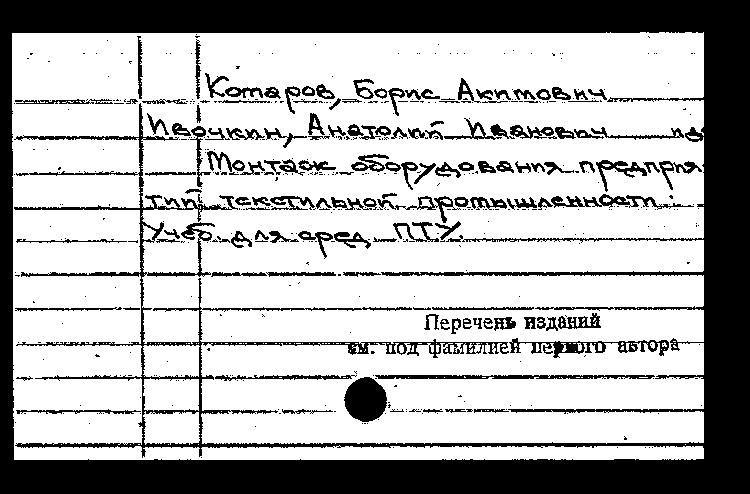 Комаров, Борис Акимович
Ивочкин, Анатолий Иванович
Монтаж оборудования предприя-
тий текстильной промышленности:
Учеб. для сред. ПТУ.
Перечень изданий
см. под фамилией первого автора